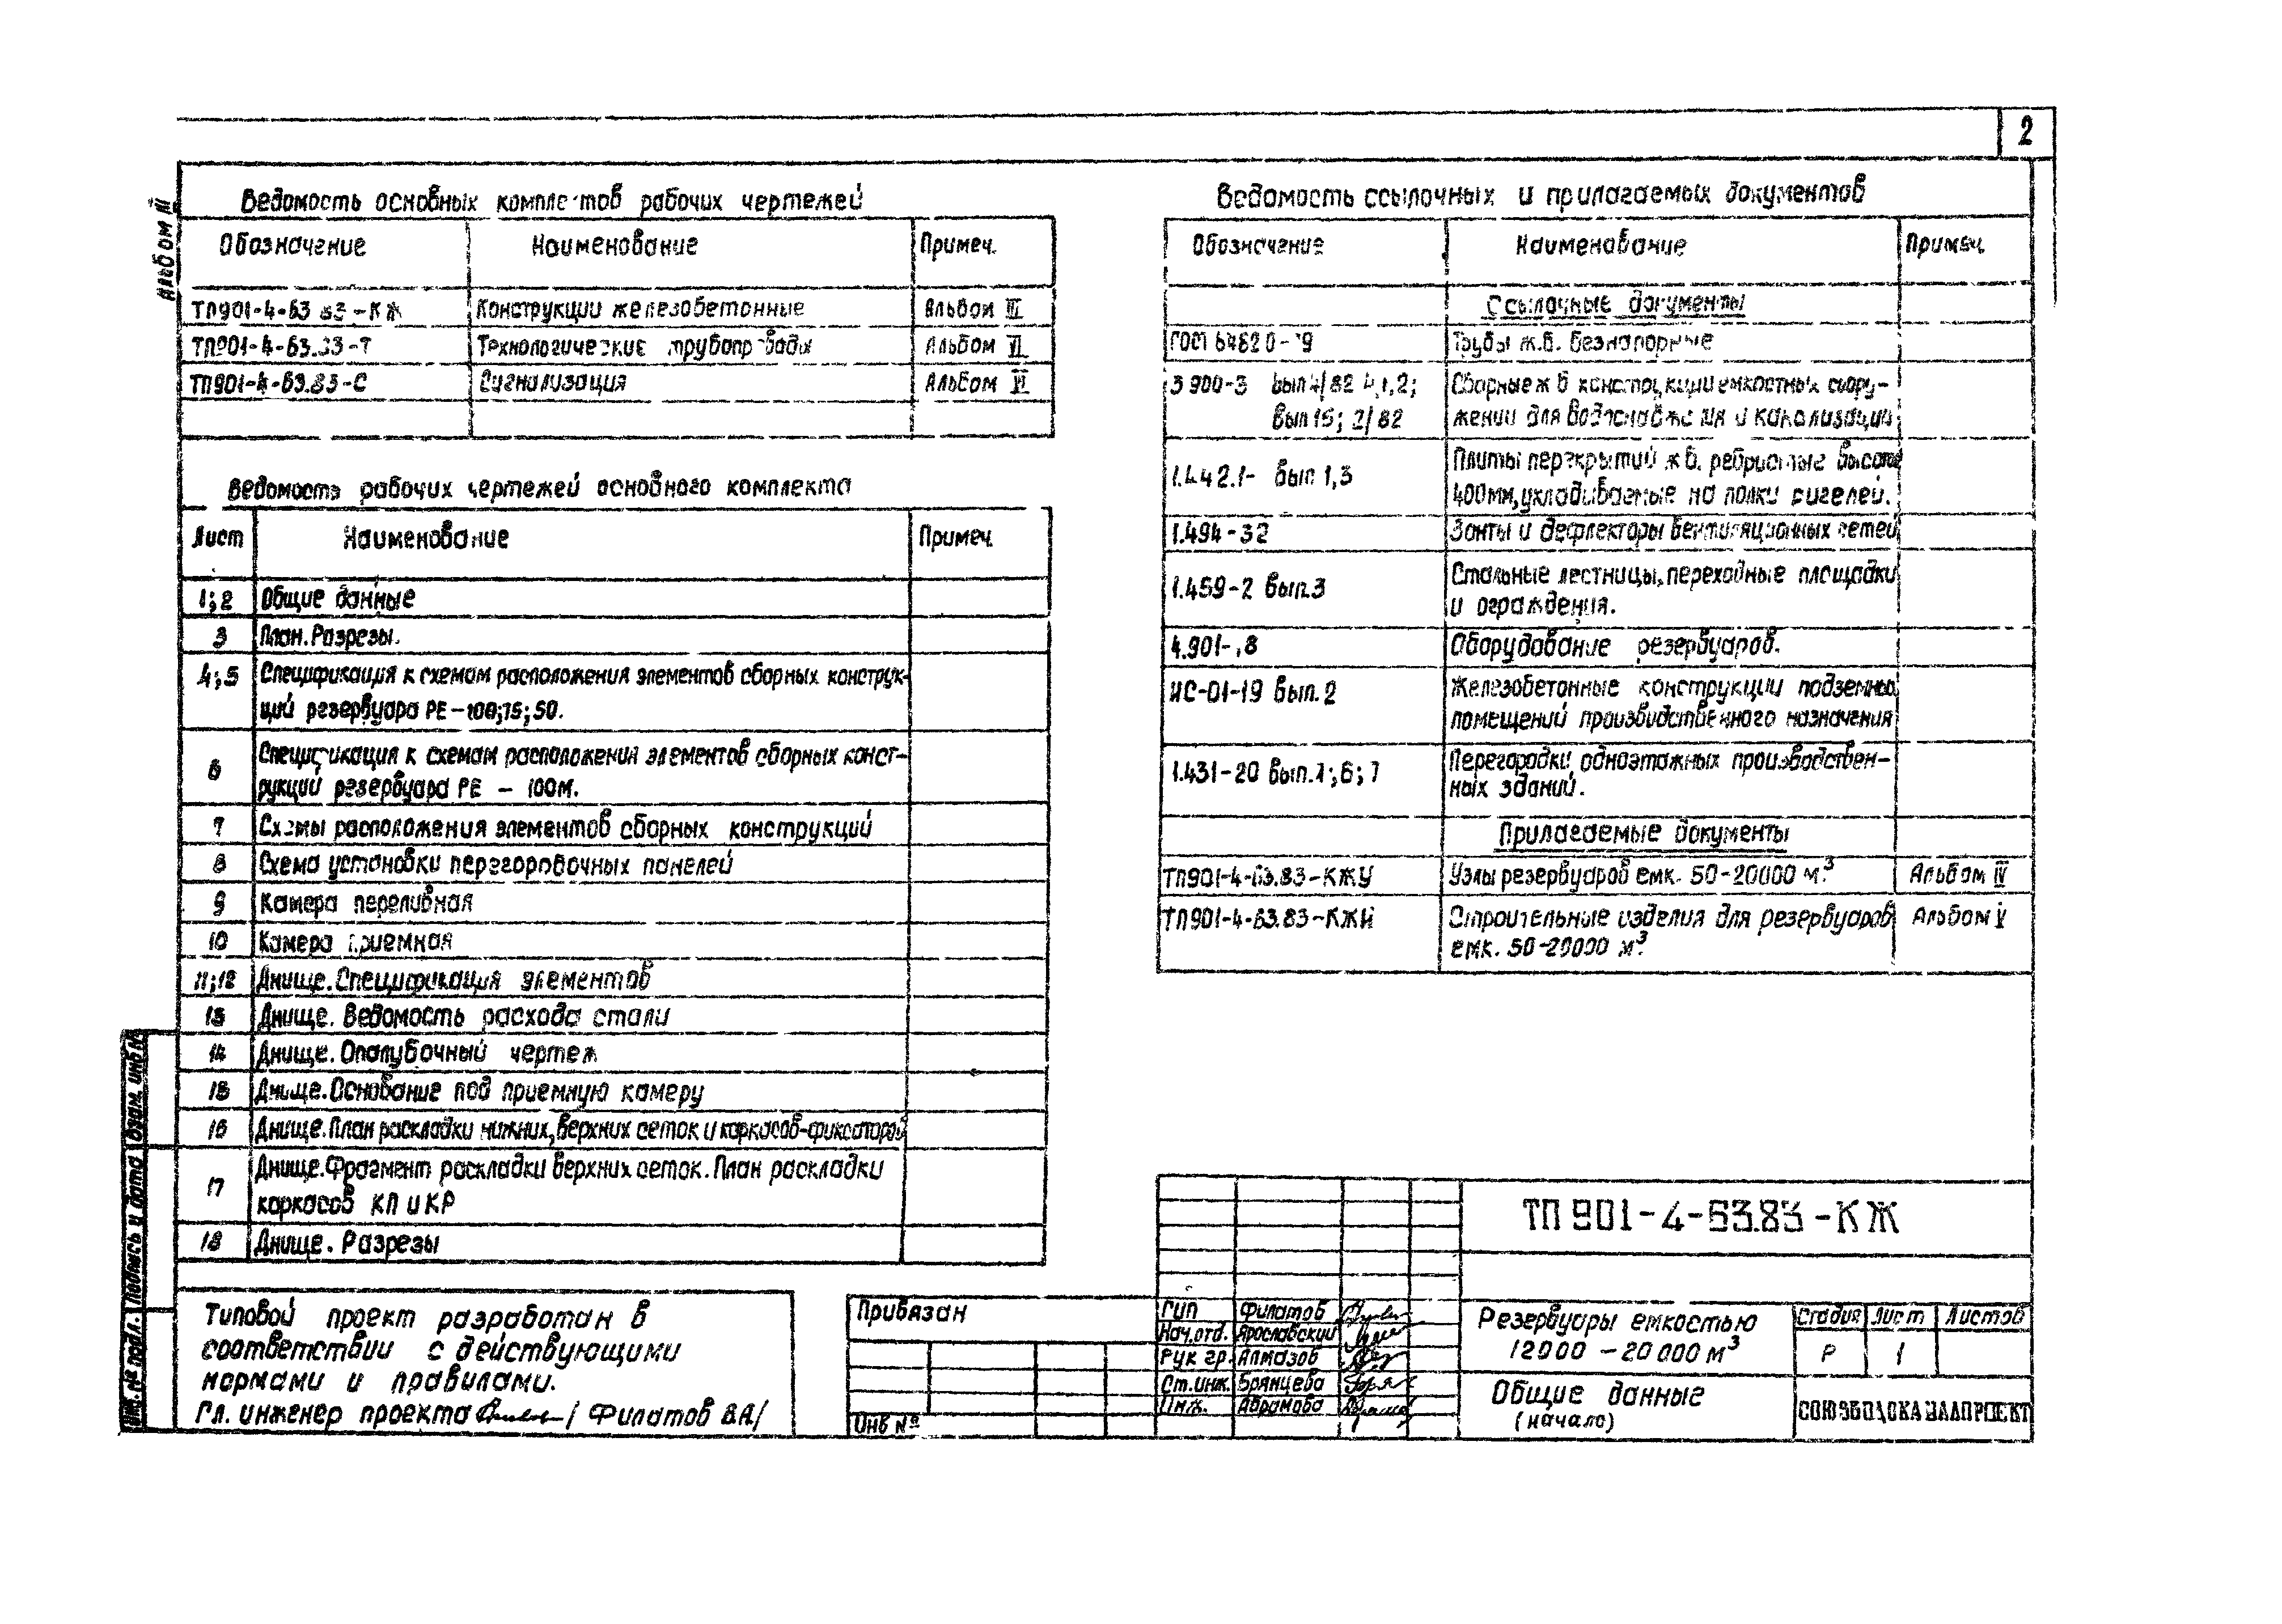 2
Альбом III
Ведомость основных комплектов рабочих чертежей
Обозначение Наименование Примеч.
ТП901-4-63.83-КЖ Конструкции железобетонные Альбом III
ТП901-4-63.83-Т Технологические трубопроводы Альбом VI
ТП901-4-63.83-С Сигнализация Альбом VI
Ведомость рабочих чертежей основного комплекта
Лист Наименование Примеч.
1;2 Общие данные
3 План. Разрезы.
4;5 Спецификация к схемам расположения элементов сборных конструк-
ций резервуара РЕ-100;75;50.
6 Спецификация к схемам расположения элементов сборных конст-
рукций резервуара РЕ - 100м.
7 Схемы расположения элементов сборных конструкций
8 Схема установки перегородочных панелей
9 Камера переливная
10 Камера приемная
11;12 Днище. Спецификация элементов
13 Днище. Ведомость расхода стали
14 Днище. Опалубочный чертеж
15 Днище. Основание под приемную камеру
16 Днище. План раскладки нижних, верхних сеток и каркасов-фиксаторов
17 Днище. Фрагмент раскладки верхних сеток. План раскладки
каркасов КП и КР
18 Днище. Разрезы
Типовой проект разработан в
соответствии с действующими
нормами и правилами.
Гл. инженер проекта /Филатов В.А/
Ведомость ссылочных и прилагаемых документов
Обозначение Наименование Примеч.
Ссылочные документы
ГОСТ Трубы ж.б. безнапорные
3.900-3 Сборные ж б конструкции емкостных соору-
вып 15; 2/82 жений для водоснабжения и канализации
1.442.1- вып 1,3 Плиты перекрытий ж б. ребристые высотой
400мм, укладываемые на полки ригелей.
1.494-32 Зонты и дефлекторы вентиляционных сетей
1.459-2 вып.3 Стальные лестницы, переходные площадки
и ограждения.
Оборудование резервуаров.
ИС-01-19 вып.2 Железобетонные конструкции подземных
помещений производственного назначения
1.431-20 вып.1;6;7 Перегородки одноэтажных производствен-
ных зданий.
Прилагаемые документы
ТП901-4-63.83-КЖУ Узлы резервуаров емк. 50-20000 м³ Альбом IV
ТП901-4-63.83-КЖИ Строительные изделия для резервуаров Альбом V
емк. 50-20000 м³
ТП 901-4-63.83-КЖ
Привязан
Инв №
Гип Филатов
Нач.отд. Ярославский
Рук гр. Алмазов
Ст.инж. Брянцева
Инж. Абрамова
Резервуары емкостью
12000 - 20 000 м³
Стадия Лист Листов
Р 1
Общие данные
(начало)
СОЮЗВОДОКАНАЛПРОЕКТ
Инв. № подл. Подпись и дата Взам. инв №